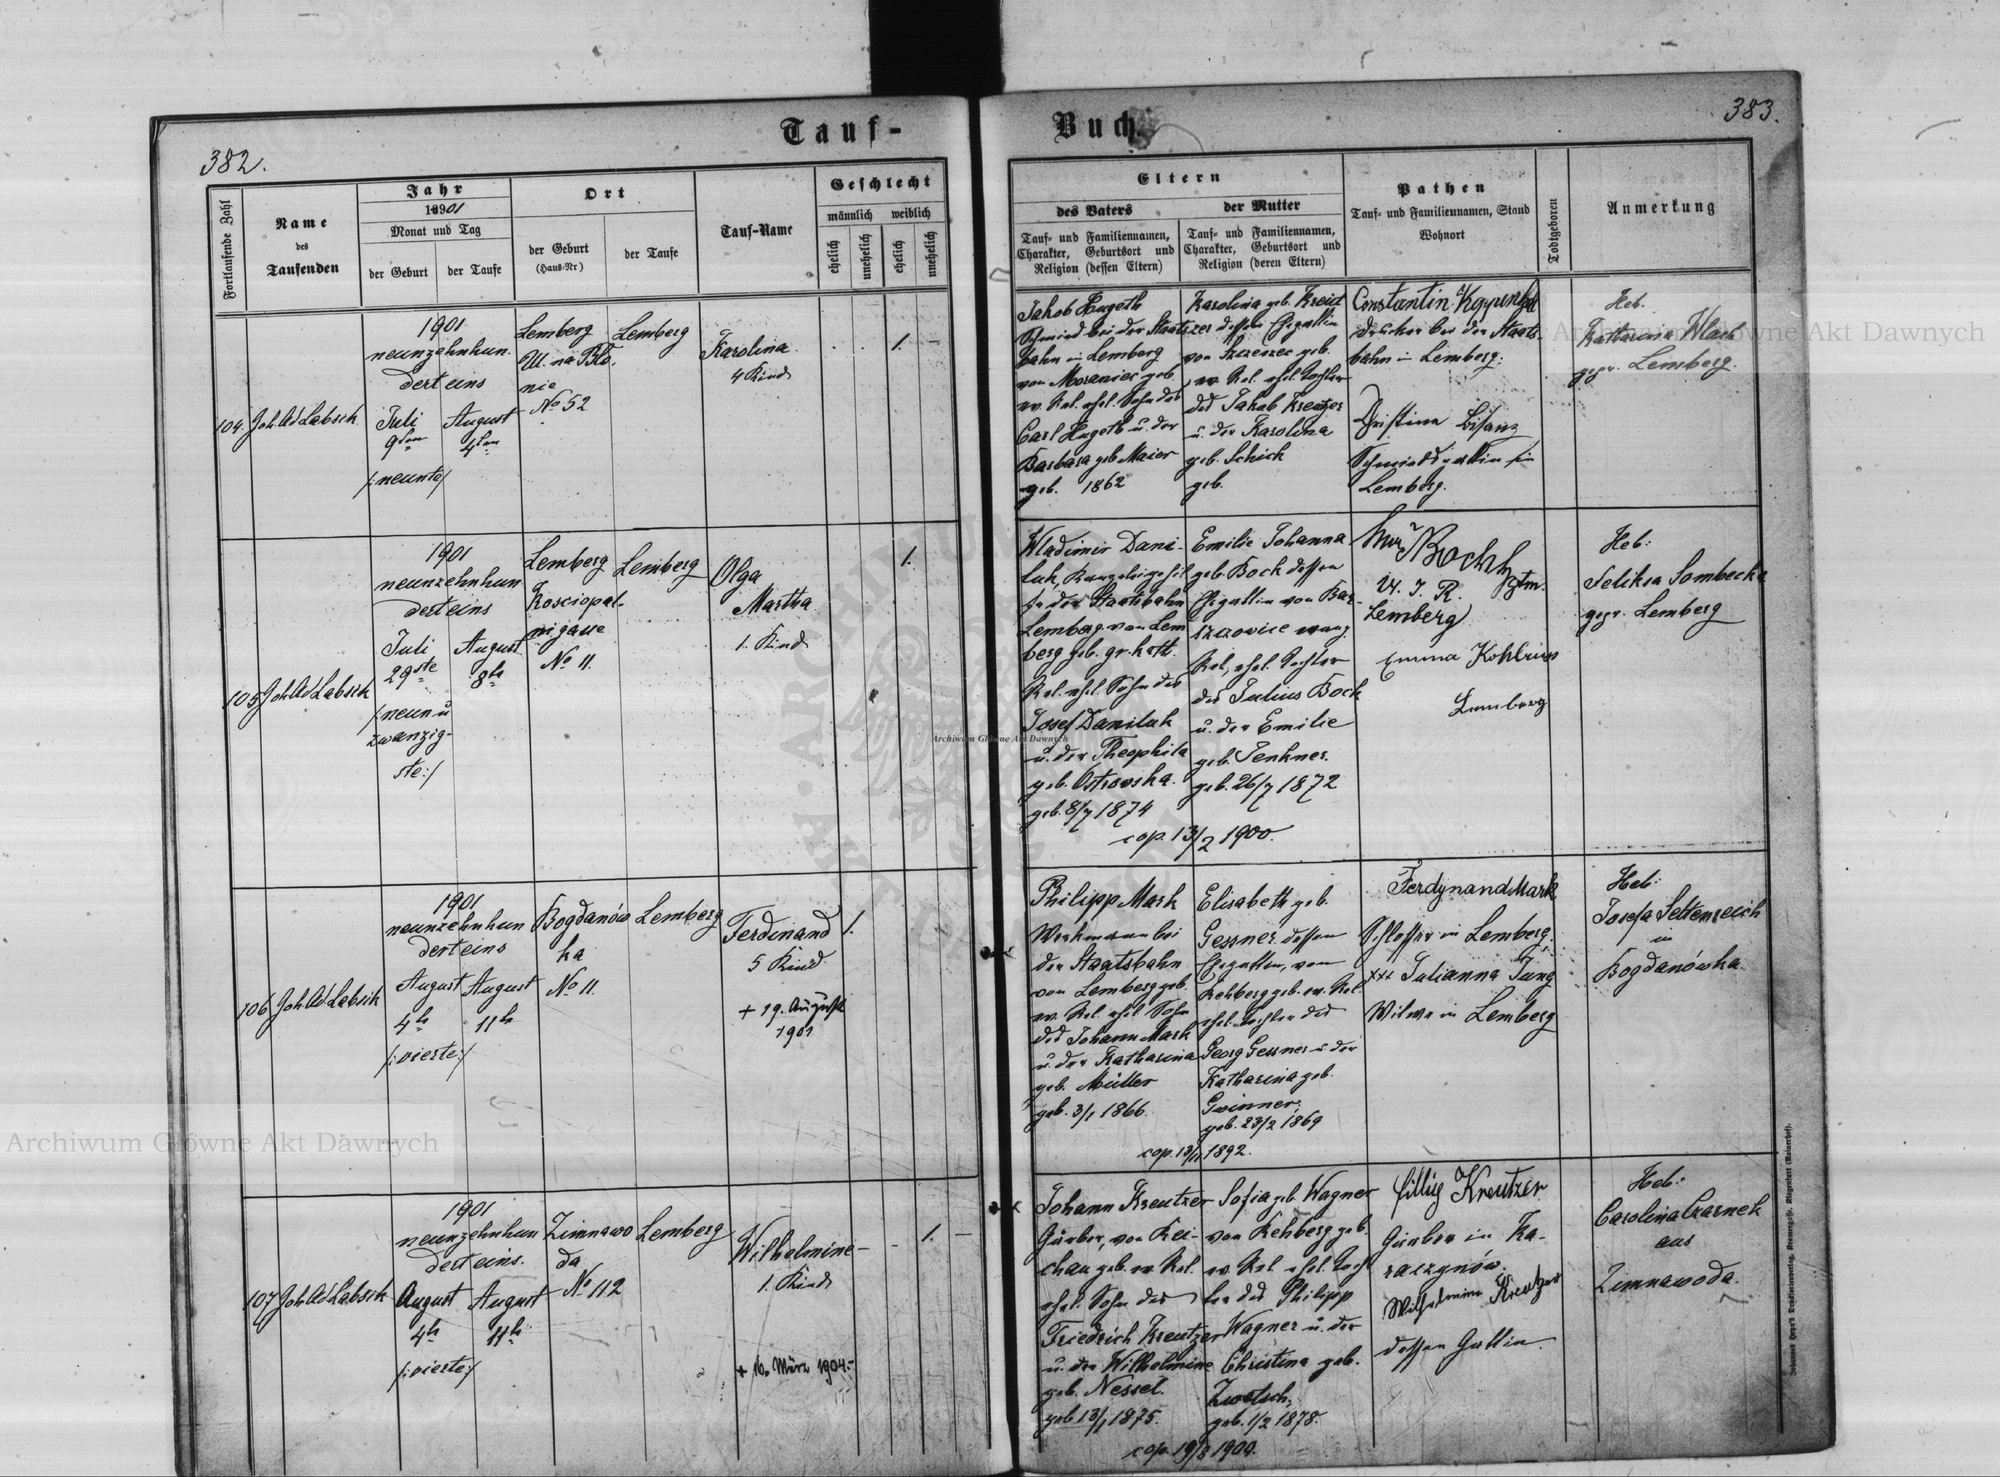 382.
383.
Tauf-
Buch.
Fortlaufende Zahl
Name
des
Taufenden
Jahr
1901
Monat und Tag
der Geburt
der Taufe
Ort
der Geburt
(Haus-Nr)
der Taufe
Tauf-Name
Geschlecht
männlich
weiblich
ehelich
unehelich
ehelich
unehelich
Eltern
des Vaters
Tauf- und Familiennamen,
Charakter, Geburtsort und
Religion (dessen Eltern)
der Mutter
Tauf- und Familiennamen,
Charakter, Geburtsort und
Religion (deren Eltern)
Pathen
Tauf- und Familiennamen, Stand
Wohnort
Todtgeboren
Anmerkung
104. Joh Ad Labsik
1901
neunzehnhun
dert eins
Juli
9ten
/:neunte/
August
4ten
Lemberg
Ul. na Bło,
nie
No 52
Lemberg
Karolina
4 Kind
1.
Jakob Hugeth
Schmied bei der Staats
bahn in Lemberg
von geb.
ev. Rel. ehel. Sohn des
Carl Hugeth u. der
Barbara geb. Maier
geb. 1862
Karolina geb. Kreut
zer dessen Ehegattin
von Szczerzec geb.
ev. Rel. ehel. Tochter
des Jakob Kreutzer
u. der Karolina
geb. Schick
geb.
Constantin
bei der Staats
bahn in Lemberg.
Christina Bisanz
Schmiedsgattin in
Lemberg.
Heb.
Katharina Wlach
gepr. Lemberg.
105 Joh Ad Labsik
1901
neunzehnhun
dert eins
Juli
29ste
/:neun u
zwanzig-
ste:/
August
8te
Lemberg
Kosciopal-
nigasse
No 11.
Lemberg
Olga
Martha
1. Kind
1.
Wladimir Dani-
luk, Kanzleigehil
fe der Staatsbahn
Lemberg von Lem
berg geb. gr. kath.
Rel. ehel. Sohn des
Josef Daniluk
u. der Theophila
geb. Ostrowska.
geb. 8/7 1874
Emilie Johanna
geb. Bock dessen
Ehegattin von Bar-
szczowice evang.
Rel, ehel. Tochter
des Julius Bock
u. der Emilie
geb. Tenkner.
geb. 26/7 1872
cop. 13/2 1900.
Bock
I. R.
Lemberg
Emma
Lemberg
Heb:
Feliksa Sombecka
gepr. Lemberg
106 Joh Ad Labsik
1901
neunzehnhun
dert eins
August
4te
/:vierte:/
August
11te
Bogdanów
ka
No 11.
Lemberg
Ferdinand
5 Kind
+ 19. August
1901
1.
Philipp Mark
Werkmann bei
der Staatsbahn
von Lemberg geb.
ev. Rel. ehel. Sohn
des Johann Mark
u. der Katharina
geb. Müller
geb. 3/1 1866.
Elisabeth geb.
Gessner, dessen
Ehegattin, von
Rehberg geb. ev. Rel.
ehel. Tochter des
Georg Gessner u. der
Katharina geb.
Gwinner.
geb. 23/2 1869
cop. 13/11 1892.
Ferdynand Mark
Schlosser in Lemberg.
xxx Julianna Jung
Witwe in Lemberg
Heb:
Josefa Settenreich
in
Bogdanówka.
107 Joh Ad Labsik
1901
neunzehnhun
dert eins.
August
4te
/:vierte:/
August
11te
Zimnawo
da
No 112
Lemberg
Wilhelmine
1. Kind
+ 16. März 1904.-
1.
Johann Kreutzer
von Rei-
chau geb. ev. Rel.
ehel. Sohn des
Friedrich Kreutzer
u. der Wilhelmine
geb. Nessel.
geb 13/1 1875.
Sofia geb. Wagner
von Rehberg geb.
ev. Rel. ehel. Toch
ter des Philipp
Wagner u. der
Christina geb.
geb. 1/2 1878.
cop. 19/8 1900.
Kreutzer
in Ka-
raczynów.
Wilhelmine Kreutzer
dessen Gattin.
Heb:
Carolina Czarnek
aus
Zimnawoda.
Archiwum Główne Akt Dawnych
Archiwum Główne Akt Dawnych
Archiwum Główne Akt Dawnych